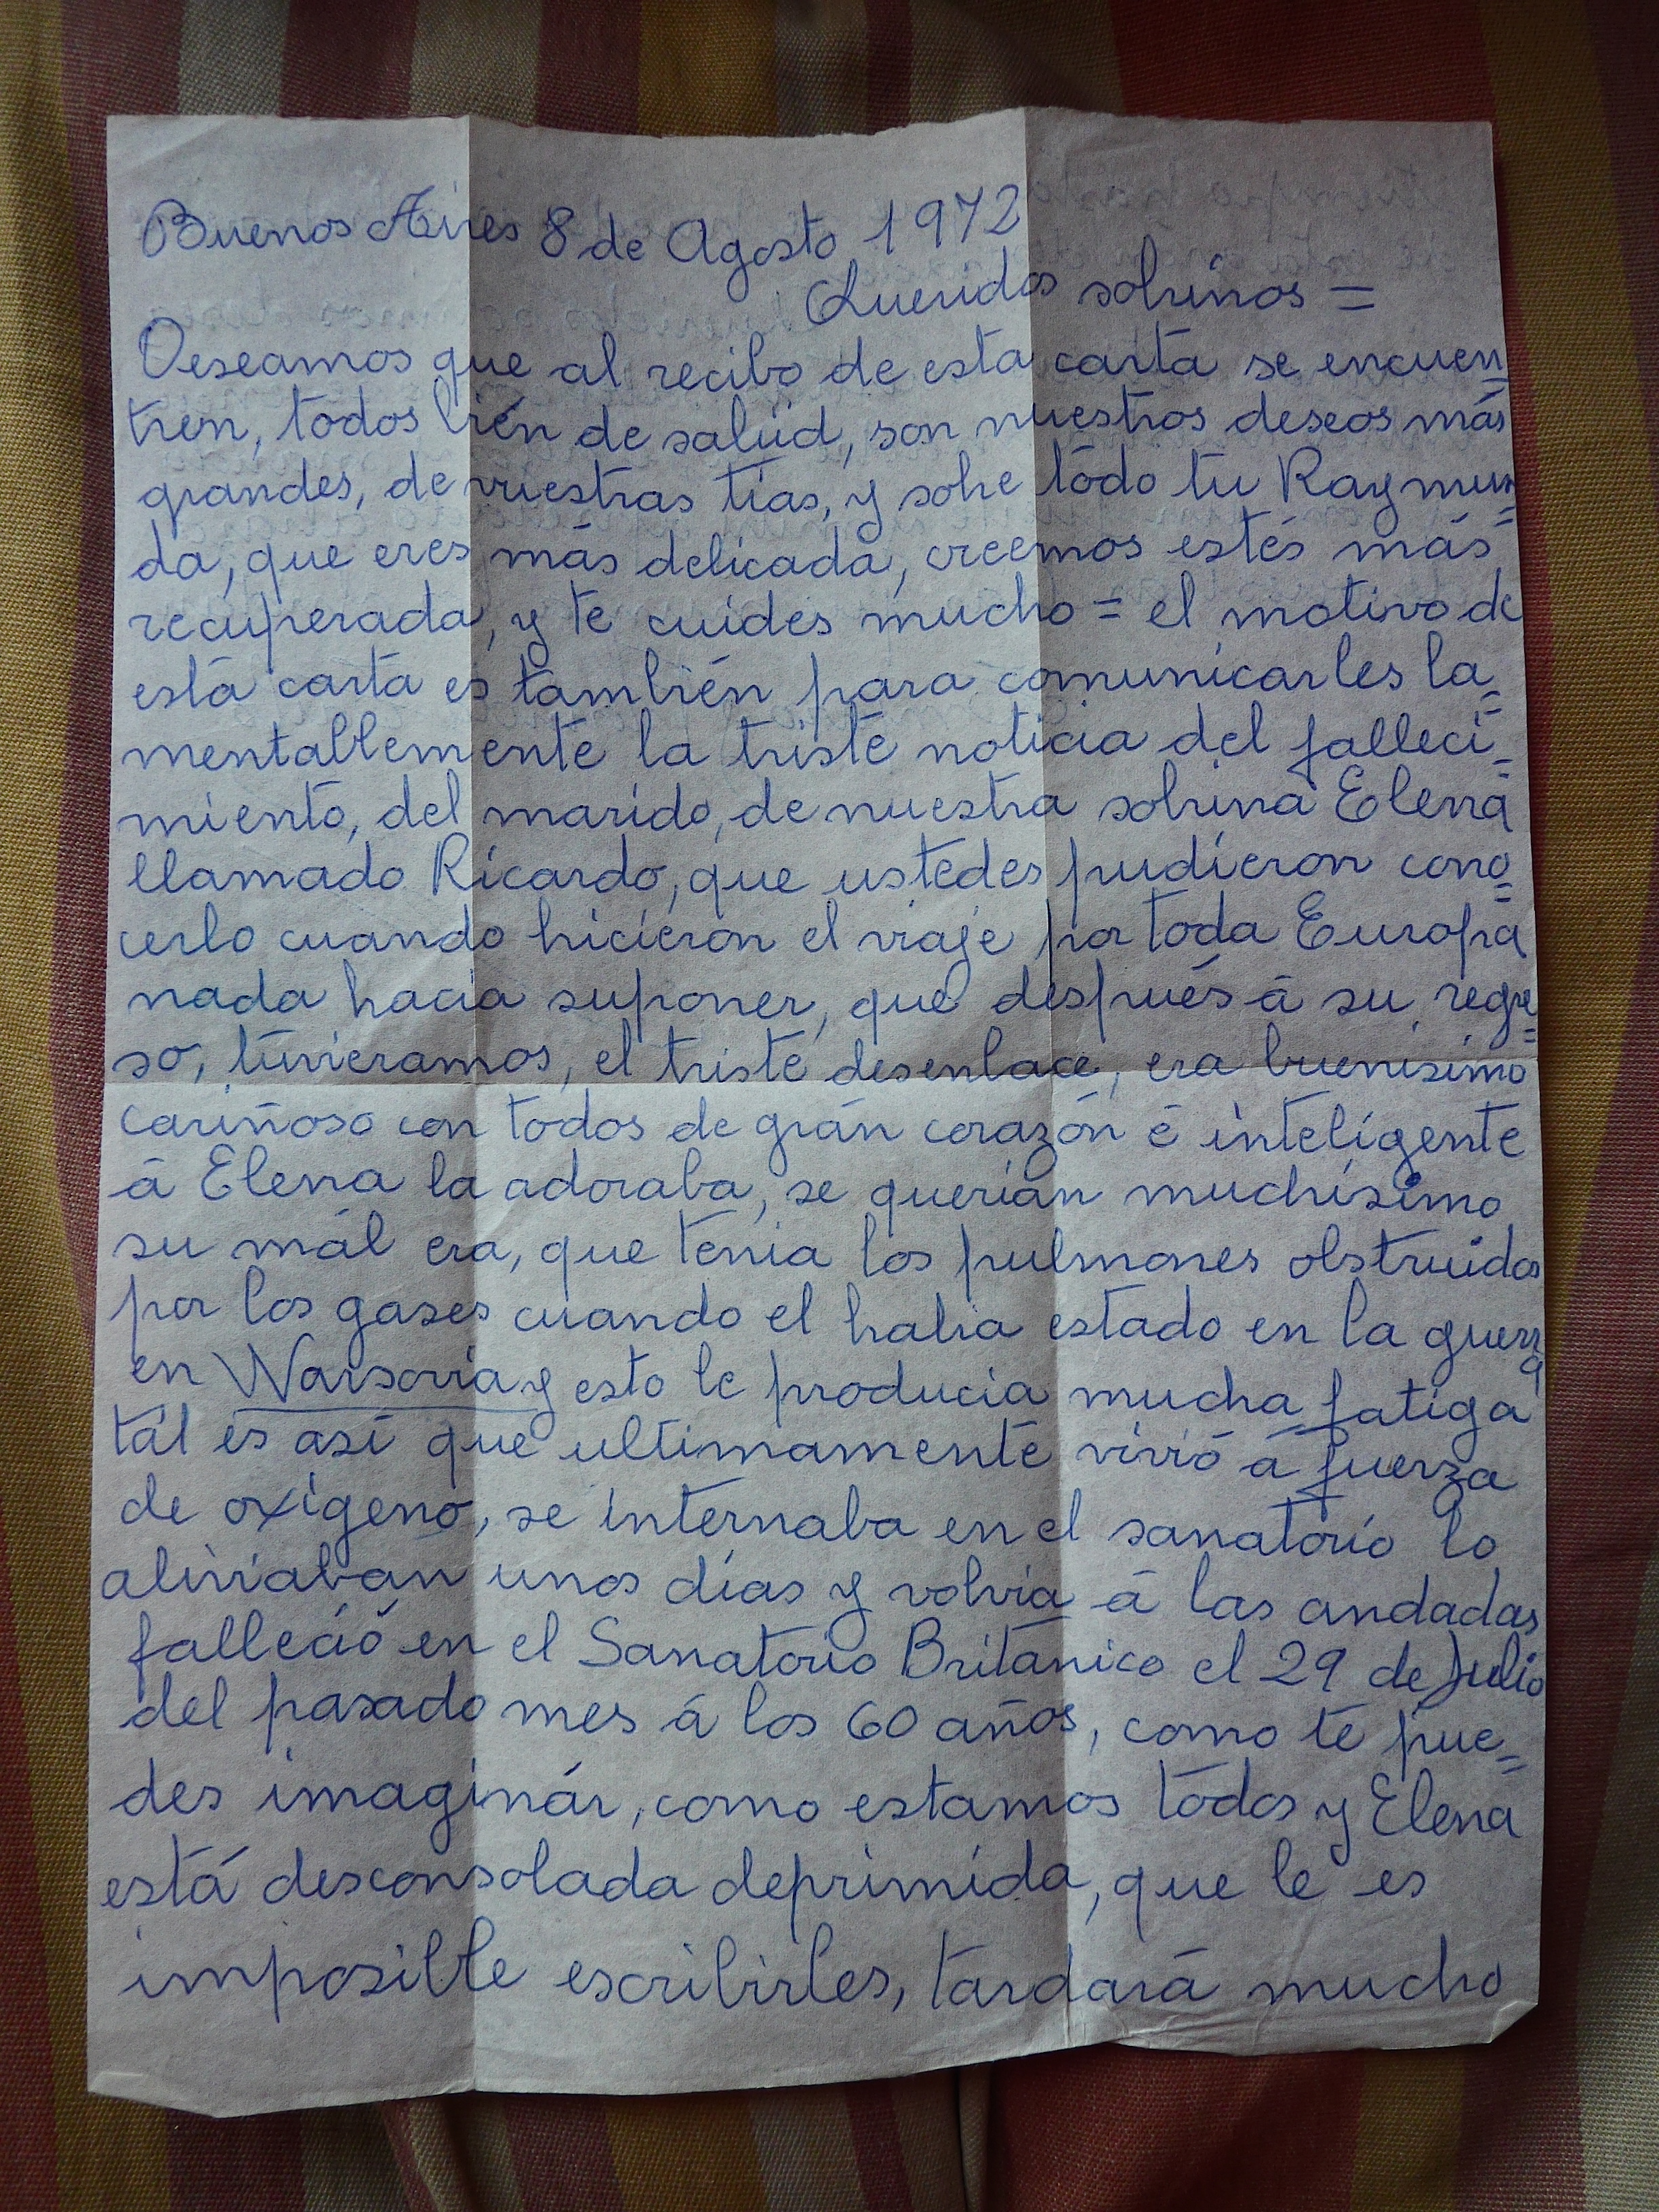 Buenos Aires 8 de Agosto 1972
Queridos sobrinos =
Deseamos que al recibo de esta carta se encuen=
tren, todos bién de salud, son nuestros deseos más
grandes, de vuestras tias, y sobre todo tu Raymun=
da, que eres más delicada, creemos estés más
recuperada, y te cuides mucho = el motivo de
está carta es también para comunicarles la=
mentablemente la triste noticia del falleci=
miento, del marido, de nuestra sobrina Elena
llamado Ricardo, que ustedes pudieron cono=
cerlo cuando hicieron el viaje por toda Europa
nada hacia suponer, que después á su regre=
so, tuvieramos, el triste desenlace, era buenisimo
cariñoso con todos de grán corazón é inteligente
á Elena la adoraba, se querián muchisimo
su mál era, que tenia los pulmones obstruidos
por los gases cuando el habia estado en la guerra
en Warsovia y esto le producia mucha fatiga
tál es asi que ultimamente vivió á fuerza
de oxigeno, se internaba en el sanatorio lo
aliviaban unos dias y volvia á las andadas
falleció en el Sanatorio Británico el 29 de Julio
del pasado mes á los 60 años, como te pue=
des imaginár, como estamos todos y Elena
está desconsolada deprimida, que le es
imposible escribirles, tardará mucho